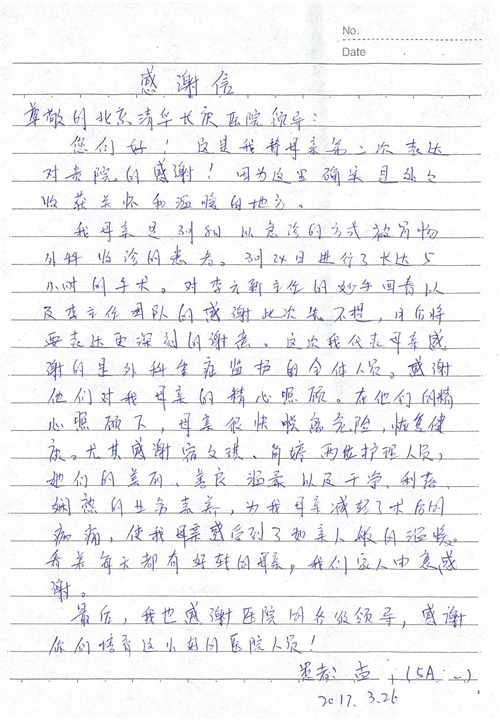 No.
Date
感谢信
尊敬的北京清华长庚医院领导：
您们好！这是我替母亲第二次表达
对贵院的感谢！因为这里确实是处处
收获关怀和温暖的地方。
我母亲是3月8日以急诊的方式被胃肠
外科收诊的患者。3月24日进行了长达5
小时的手术。对李元新主任的妙手回春以
及李主任团队的感谢此次先不提，日后将
要表达更深刻的谢意。这次我代表母亲感
谢的是外科重症监护的全体人员。感谢
他们对我母亲的精心照顾。在他们的精
心照顾下，母亲很快脱离危险，恢复健
康。尤其感谢 文琪、 婷两位护理人员，
她们的美丽、善良、温柔以及干净、利落、
娴熟的业务素养，为我母亲减轻了术后的
病痛，使我母亲感受到了如亲人般的温暖。
看着每天都有好转的母亲，我们家人由衷感
谢。
最后，我也感谢医院的各级领导，感谢
你们培育这么好的医院人员！
患者：孟 (5A
2017.3.26